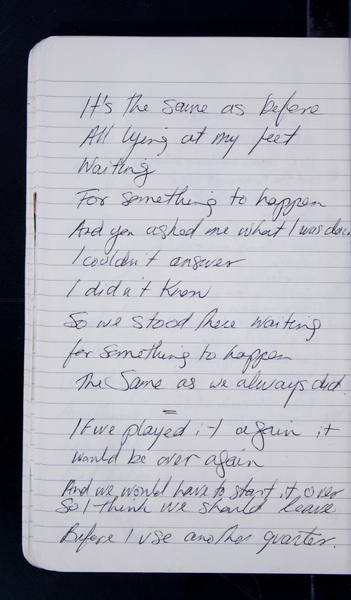 It's the same as before
All lying at my feet
Waiting
For something to happen
And you asked me what I was doin
I couldn't answer
I didn't know
So we stood there waiting
for something to happen
The Same as we always did.
If we played it again it
would be over again
And we would have to start it over
So I think we should leave
Before I use another quarter.